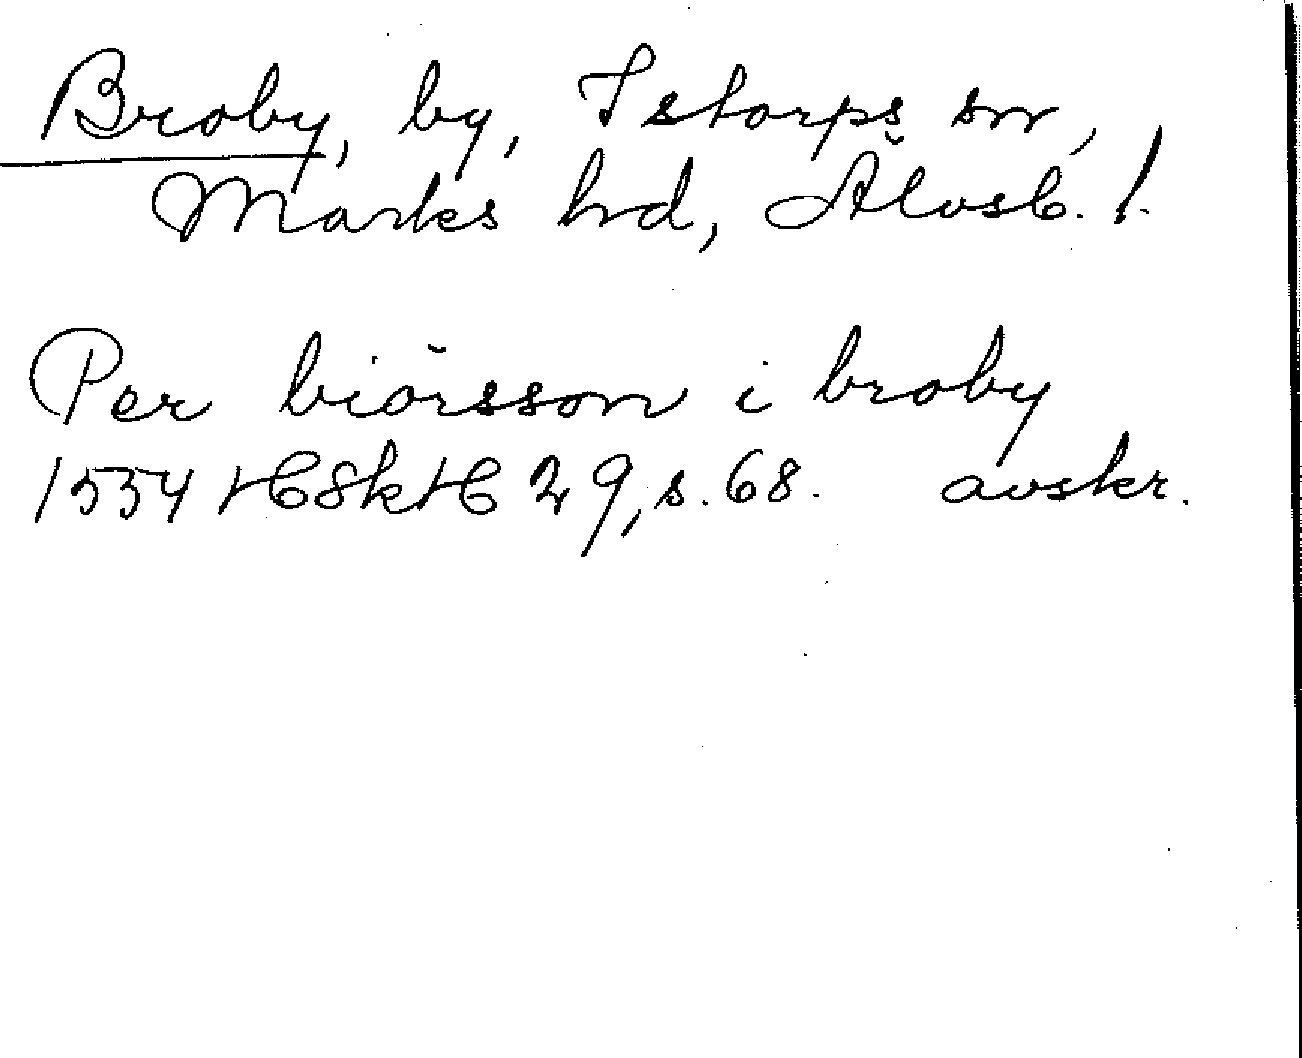 Broby, by, Istorps sn,
Marks hd, Älvsb. l.
Per biörsson i broby
1534 HSkH 29, s. 68. avskr.